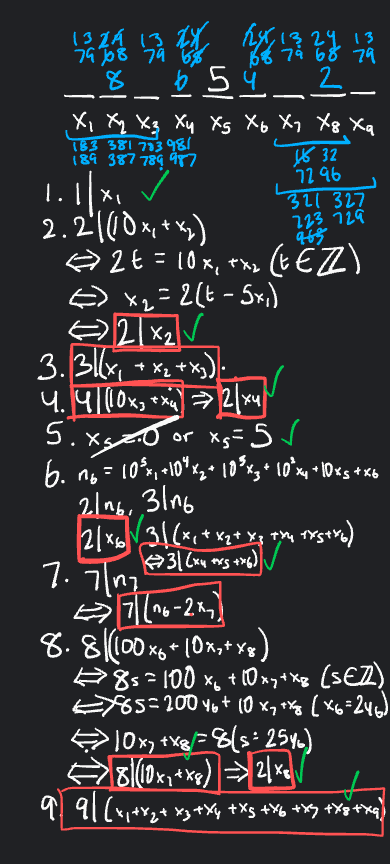 13 24 13 24 24 13 24 13
79 68 79 68 68 79 68 79
8 6 5 4 2
x₁ x₂ x₃ x₄ x₅ x₆ x₇ x₈ x₉
183 381 783 981 16 32
189 387 789 987 72 96
321 327
723 729
963
1. 1|x₁ ✓
2. 2|(10x₁+x₂)
⇔ 2t = 10x₁ + x₂ (t∈ℤ)
⇔ x₂ = 2(t - 5x₁)
⇔ 2|x₂ ✓
3. 3|(x₁ + x₂ + x₃).
4. 4|(10x₃+x₄) ⇒ 2|x₄ ✓
5. x₅=0 or x₅=5 ✓
6. n₆ = 10⁵x₁+10⁴x₂+10³x₃+10²x₄+10x₅+x₆
2|n₆, 3|n₆
2|x₆ ✓ 3|(x₁+x₂+x₃+x₄+x₅+x₆)
⇔ 3|(x₄+x₅+x₆) ✓
7. 7|n₇
⇔ 7|(n₆-2x₇)
8. 8|(100x₆+10x₇+x₈)
⇔ 8s = 100x₆+10x₇+x₈ (s∈ℤ)
⇔ 8s = 200y₆+10x₇+x₈ (x₆=2y₆)
⇔ 10x₇+x₈ = 8(s-25y₆)
⇔ 8|(10x₇+x₈) ✓ ⇒ 2|x₈ ✓
9. 9|(x₁+x₂+x₃+x₄+x₅+x₆+x₇+x₈+x₉) ✓